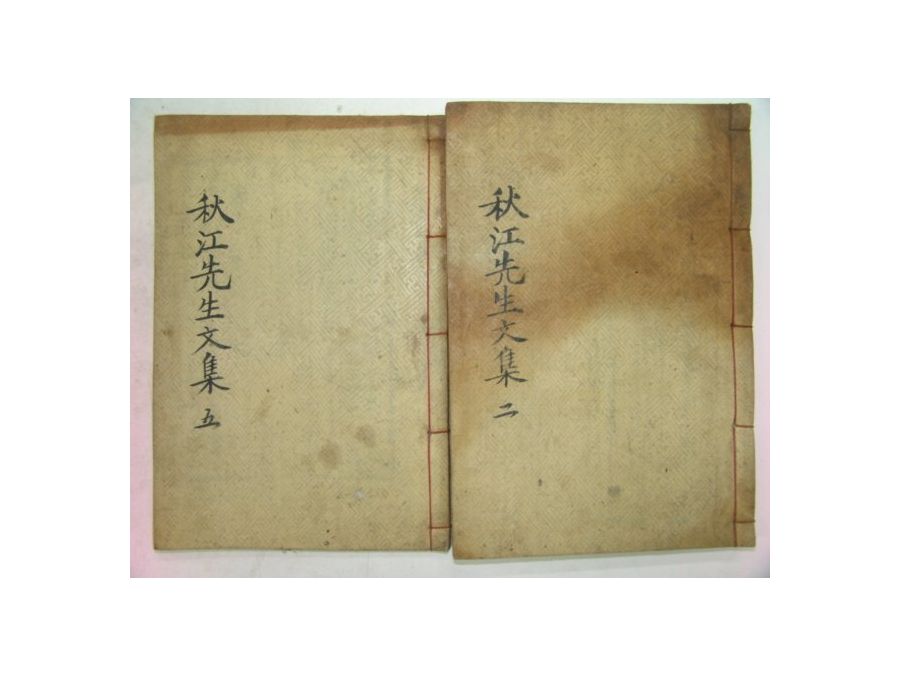 秋江先生文集 二
秋江先生文集 五